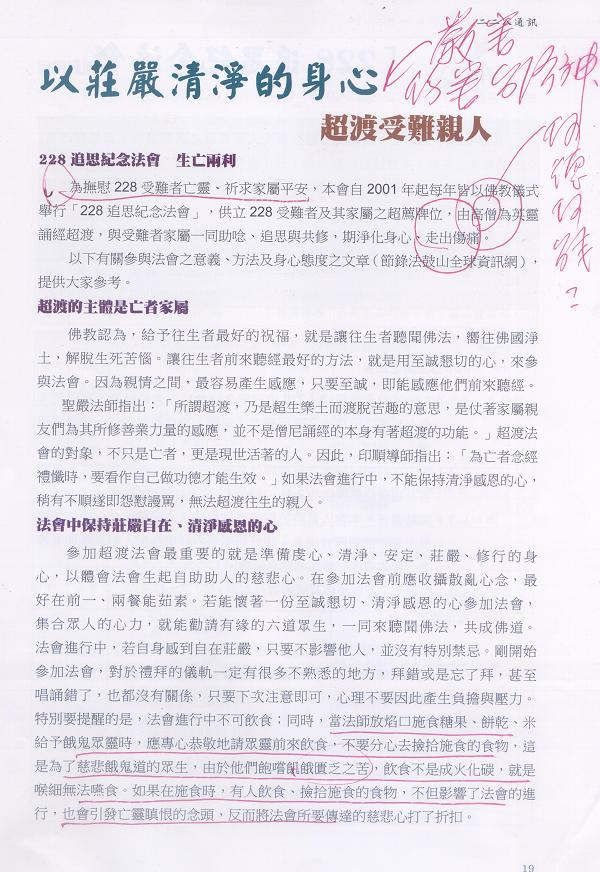 二二八通訊
以莊嚴清淨的身心
超渡受難親人
228 追思紀念法會　生亡兩利
為撫慰 228 受難者亡靈、祈求家屬平安，本會自 2001 年起每年皆以佛教儀式
舉行「228 追思紀念法會」，供立 228 受難者及其家屬之超薦牌位，由高僧為英靈
誦經超渡，與受難者家屬一同助唸、追思與共修，期淨化身心、走出傷痛。
以下有關參與法會之意義、方法及身心態度之文章（節錄法鼓山全球資訊網），
提供大家參考。
超渡的主體是亡者家屬
佛教認為，給予往生者最好的祝福，就是讓往生者聽聞佛法，嚮往佛國淨
土，解脫生死苦惱。讓往生者前來聽經最好的方法，就是用至誠懇切的心，來參
與法會。因為親情之間，最容易產生感應，只要至誠，即能感應他們前來聽經。
聖嚴法師指出：「所謂超渡，乃是超生樂土而渡脫苦趣的意思，是仗著家屬親
友們為其所修善業力量的感應，並不是僧尼誦經的本身有著超渡的功能。」超渡法
會的對象，不只是亡者，更是現世活著的人。因此，印順導師指出：「為亡者念經
禮懺時，要看作自己做功德才能生效。」如果法會進行中，不能保持清淨感恩的心，
稍有不順遂即怨懟謾罵，無法超渡往生的親人。
法會中保持莊嚴自在、清淨感恩的心
參加超渡法會最重要的就是準備虔心、清淨、安定、莊嚴、修行的身
心，以體會法會生起自助助人的慈悲心。在參加法會前應收攝散亂心念，最
好在前一、兩餐能茹素。若能懷著一份至誠懇切、清淨感恩的心參加法會，
集合眾人的心力，就能勸請有緣的六道眾生，一同來聽聞佛法，共成佛道。
法會進行中，若自身感到自在莊嚴，只要不影響他人，並沒有特別禁忌。剛開始
參加法會，對於禮拜的儀軌一定有很多不熟悉的地方，拜錯或是忘了拜，甚至
唱誦錯了，也都沒有關係，只要下次注意即可，心理不要因此產生負擔與壓力。
特別要提醒的是，法會進行中不可飲食；同時，當法師放焰口施食糖果、餅乾、米
給予餓鬼眾靈時，應專心恭敬地請眾靈前來飲食，不要分心去撿拾施食的食物，這
是為了慈悲餓鬼道的眾生，由於他們飽嚐飢餓匱乏之苦，飲食不是成火化碳，就是
喉細無法嚥食。如果在施食時，有人飲食、撿拾施食的食物，不但影響了法會的進
行，也會引發亡靈瞋恨的念頭，反而將法會所要傳達的慈悲心打了折扣。
19